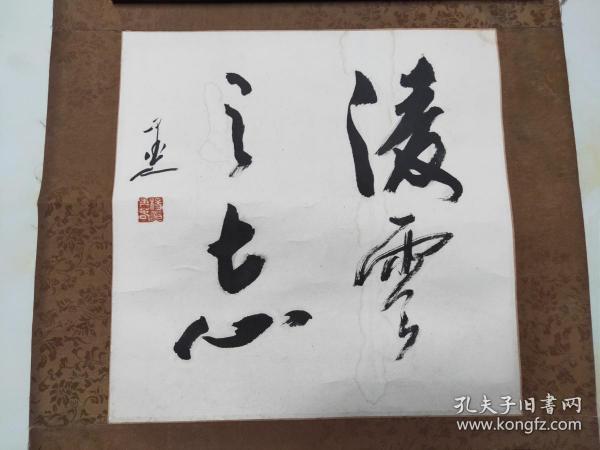 淩雲
之志
孔夫子旧書网
www.kongfz.com